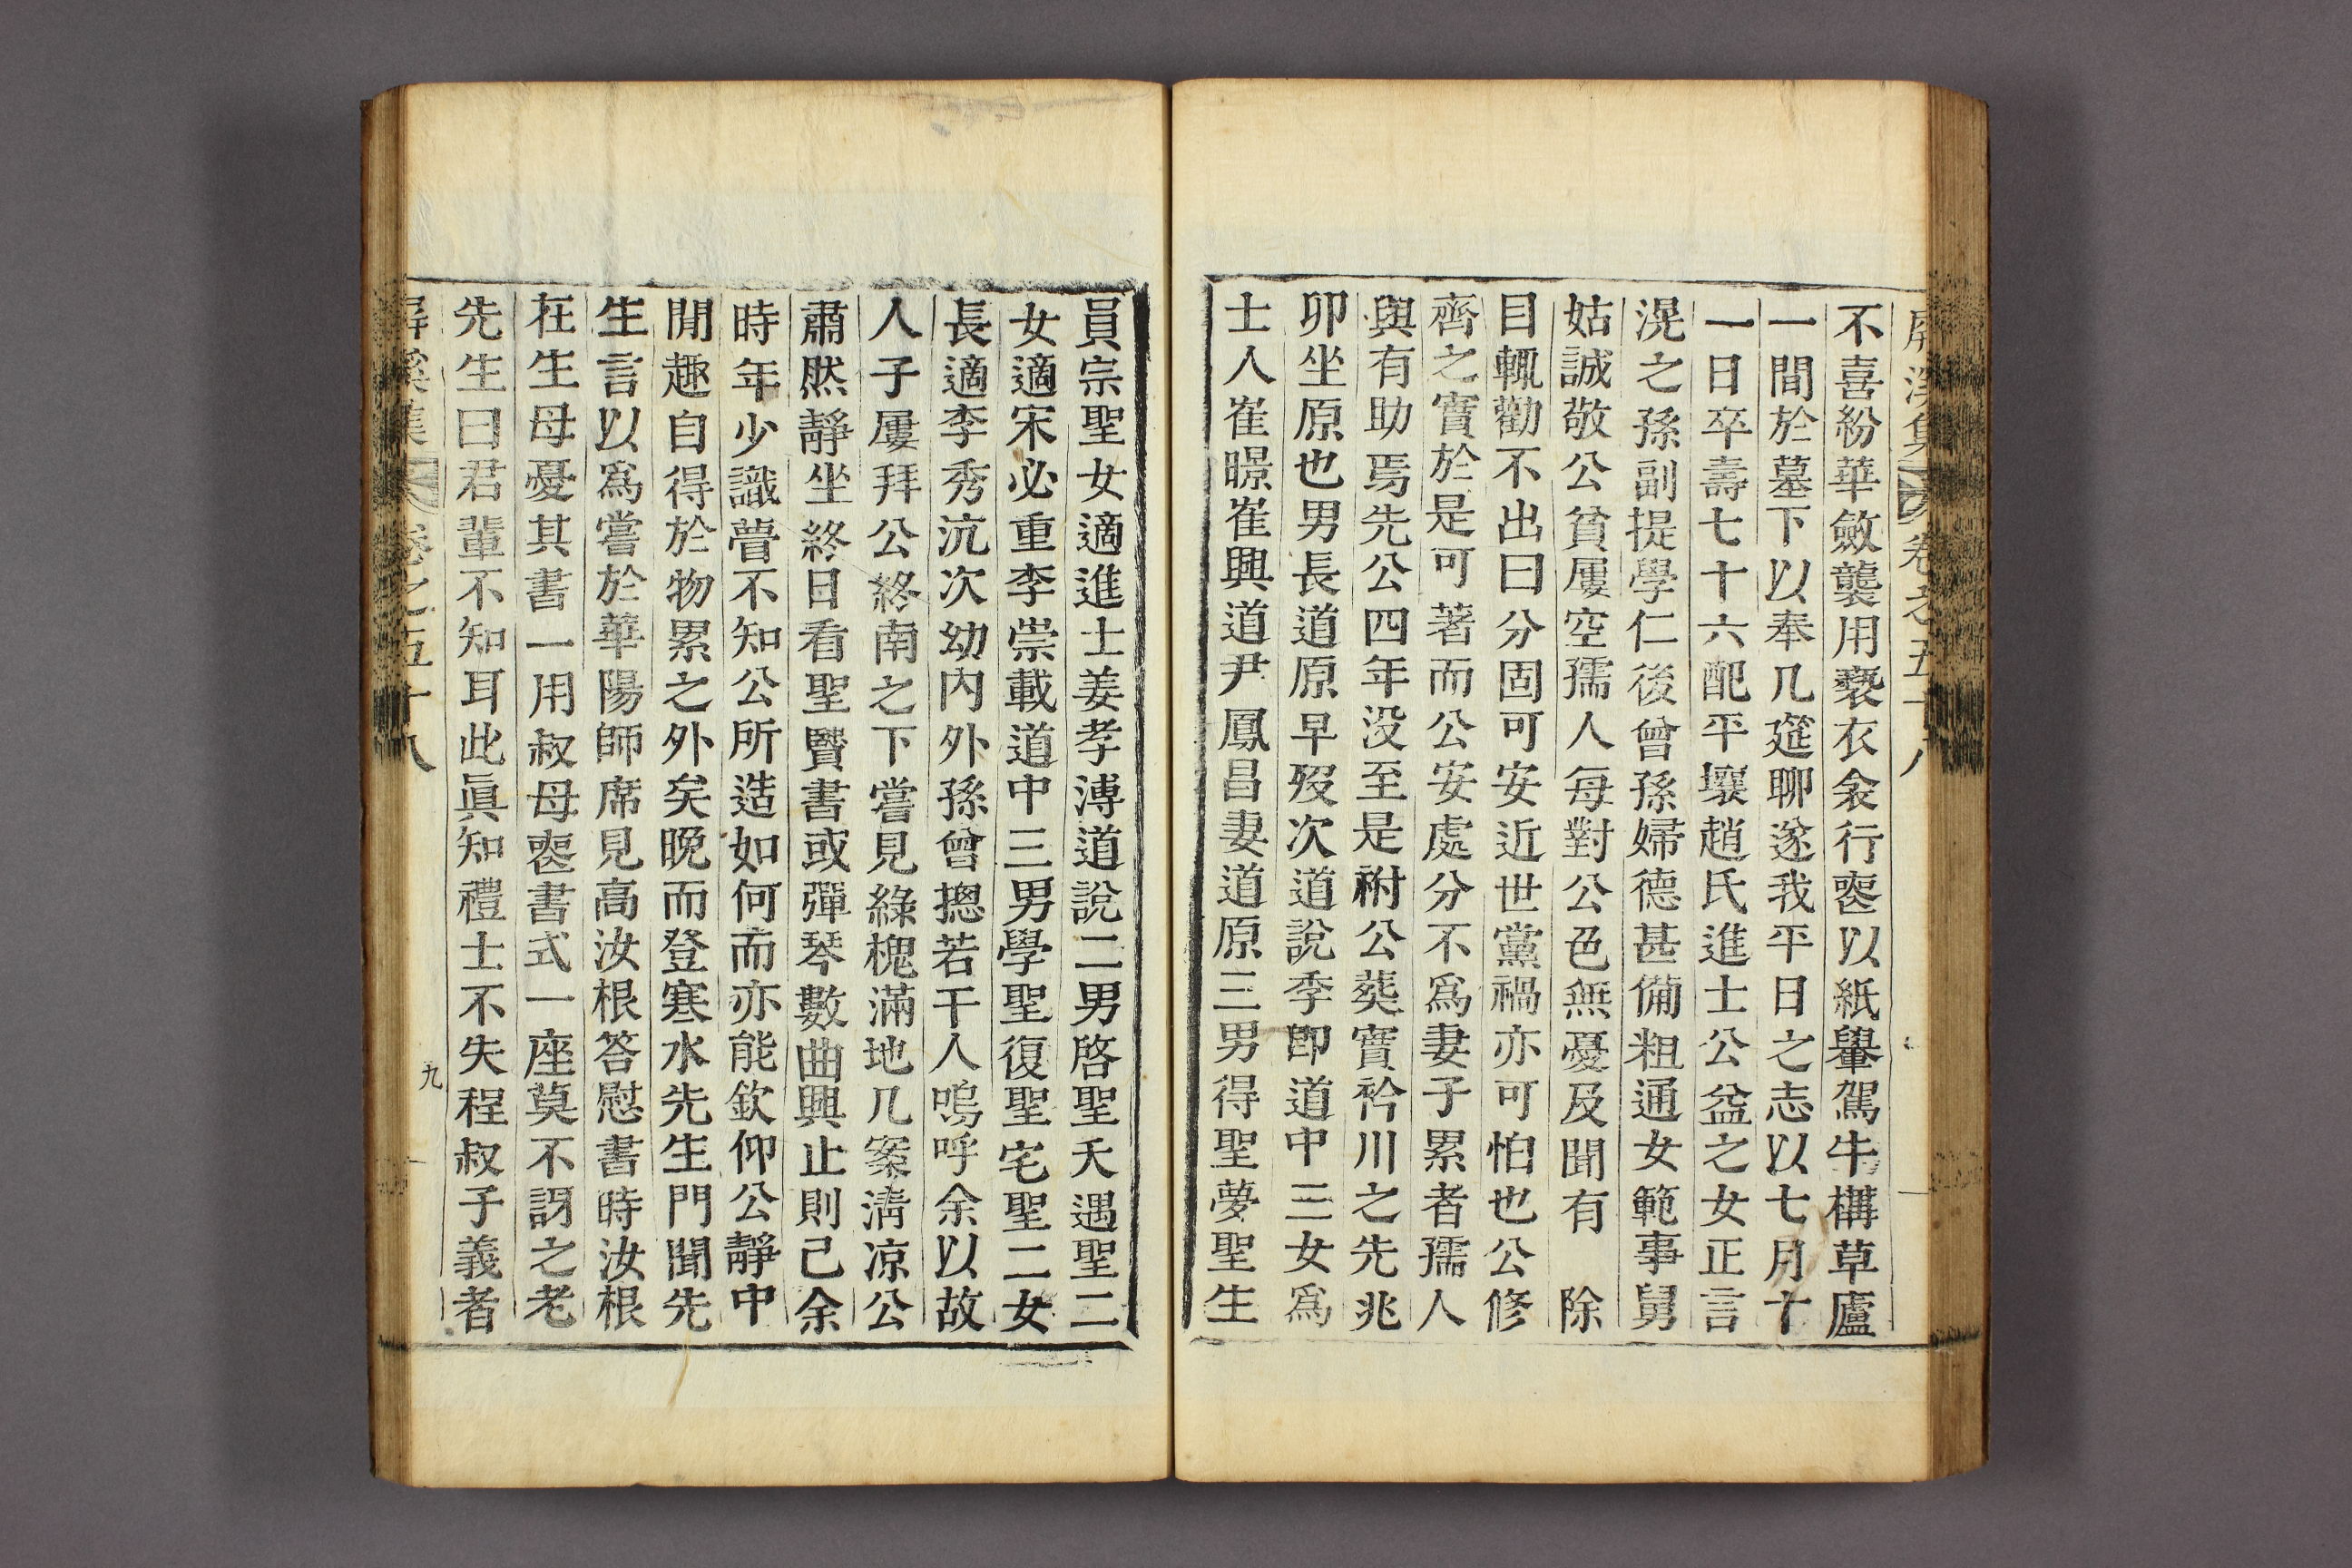 屛溪集 卷之五十八
不喜紛華斂襲用褻衣衾行喪以紙轝駕牛構草廬
一間於墓下以奉几筵聊遂我平日之志以七月十
一日卒壽七十六配平壤趙氏進士公益之女正言
滉之孫副提學仁後曾孫婦德甚備粗通女範事舅
姑誠敬公貧屢空孺人每對公色無憂及聞有 除
目輒勸不出曰分固可安近世黨禍亦可怕也公修
齊之實於是可著而公安處分不爲妻子累者孺人
與有助焉先公四年没至是祔公葬實衿川之先兆
卯坐原也男長道原早歿次道說季卽道中三女爲
士人崔暻崔興道尹鳳昌妻道原三男得聖夢聖生
員宗聖女適進士姜孝溥道說二男啓聖夭遇聖二
女適宋必重李崇載道中三男學聖復聖宅聖二女
長適李秀沆次幼內外孫曾摠若干人嗚呼余以故
人子屢拜公終南之下嘗見綠槐滿地几案淸凉公
肅然靜坐終日看聖賢書或彈琴數曲興止則已余
時年少識瞢不知公所造如何而亦能欽仰公靜中
閒趣自得於物累之外矣晩而登寒水先生門聞先
生言以爲嘗於華陽師席見高汝根答慰書時汝根
在生母憂其書一用叔母喪書式一座莫不訝之老
先生曰君輩不知耳此眞知禮士不失程叔子義者
屛溪集 卷之五十八 九